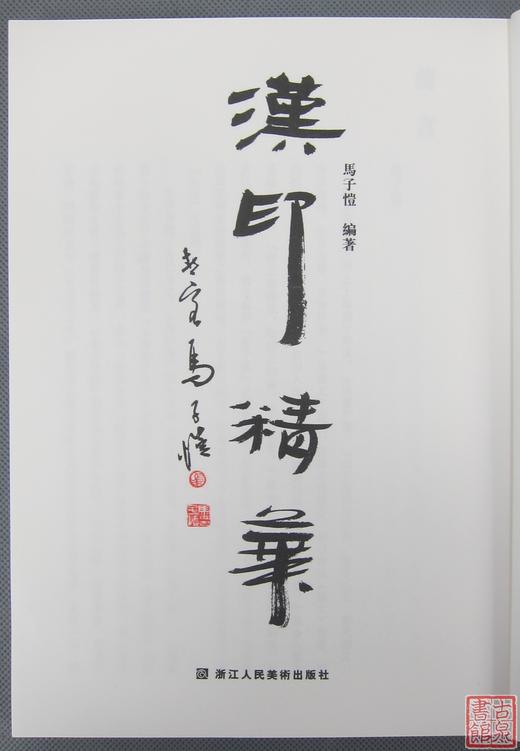 漢印精華
馬子愷 編著
馬子愷
浙江人民美術出版社
古泉
書館